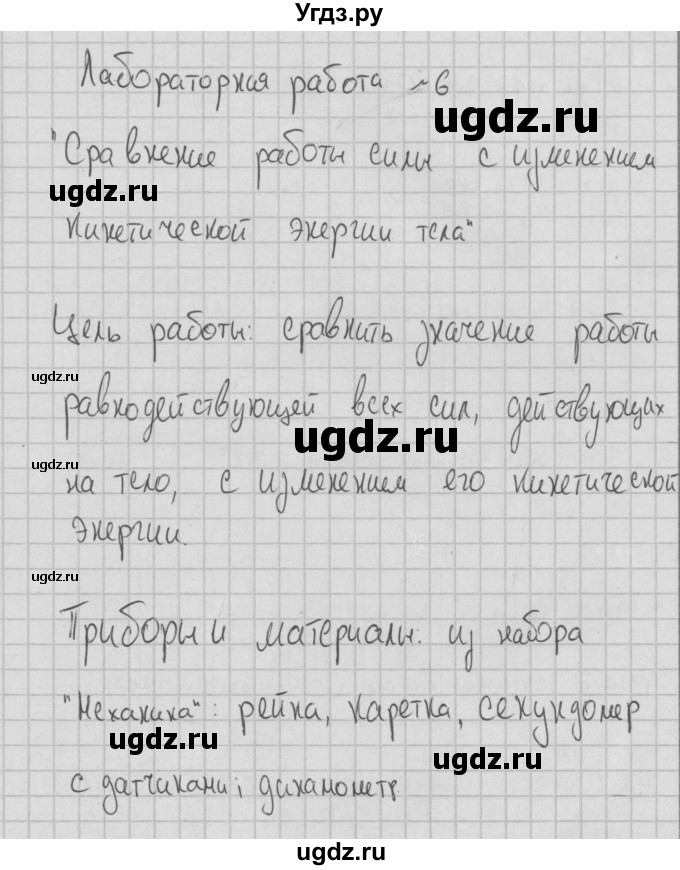 Угдз.ру
Лабораторная работа №6
ugdz.ru
"Сравнение работы силы с изменением
ugdz.ru
кинетической энергии тела"
Цель работы: сравнить значение работы
ugdz.ru
равнодействующей всех сил, действующих
ugdz.ru
ugdz.ru
на тело, с изменением его кинетической
энергии.
ugdz.ru
Приборы и материалы: из набора
"Механика": рейка, каретка, секундомер
ugdz.ru
ugdz.ru
с датчиками; динамометр.
ugdz.ru